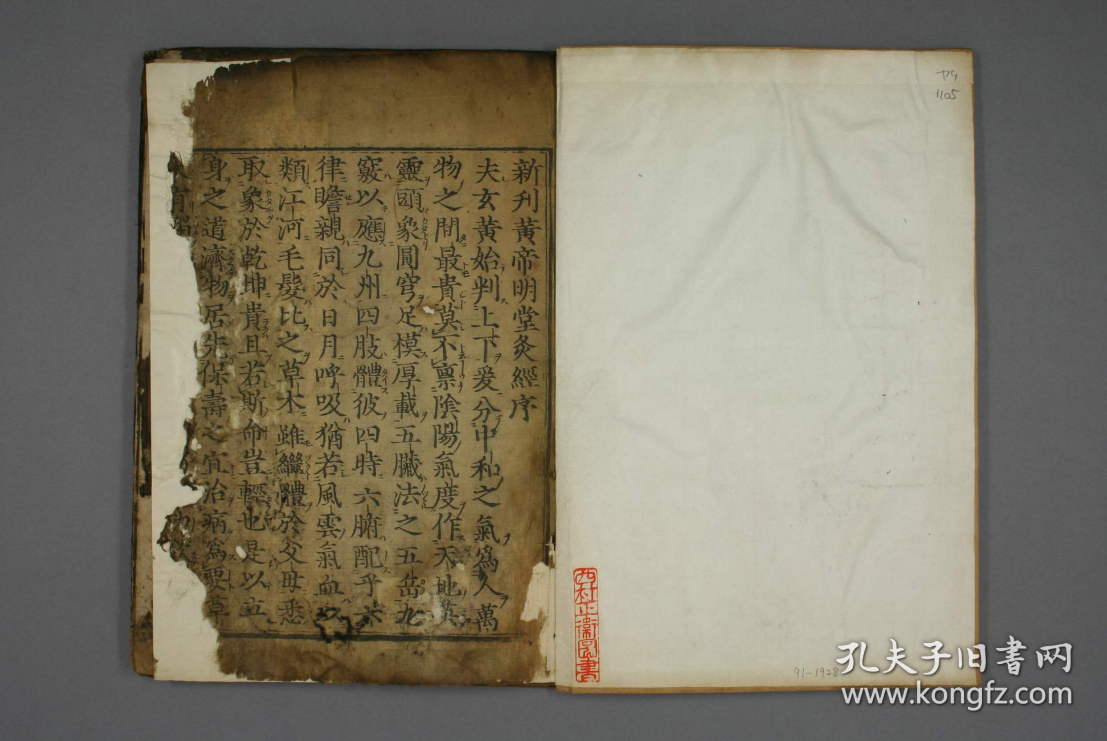 新刋黄帝明堂灸經序
夫玄黄始判上下爰分中和之氣爲人萬
物之間最貴莫不禀陰陽氣度作天地英
靈頭象圓穹足模厚載五臟法之五岳九
竅以應九州四肢體彼四時六腑配乎六
律瞻視同於日月呼吸猶若風雲氣血以
類江河毛髮比之草木雖繼體於父母悉
取象於乾坤貴且若斯命豈輕也是以立
身之道濟物居先保壽之宜治病爲要草
功
91-1928
1105
孔夫子旧書网
www.kongfz.com